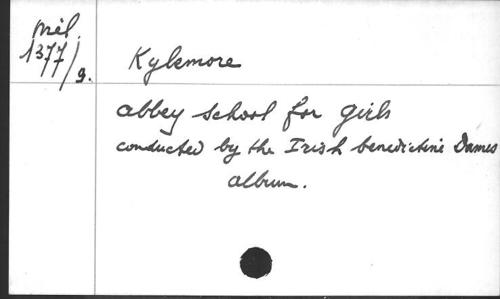 mél.
1377/9.
Kylemore
abbey school for girls
conducted by the Irish benedictine Dames
album.